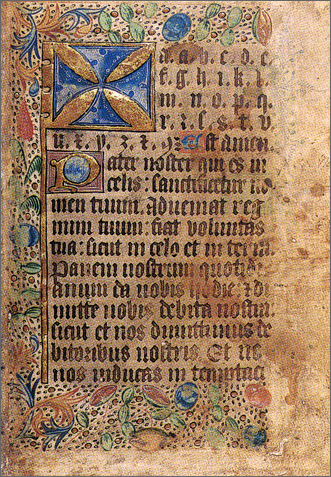 a. a. b. c. d. e.
f. g. h. i. k. l.
m. n. o. p. q.
r. ꝛ. ſ. s. t. v
u. x. y. z. ⁊. ꝯ: Est amen
Pater noster qui es in
celis: sanctificetur no
men tuum. Adueniat reg
num tuum: fiat voluntas
tua: sicut in celo et in terra.
Panem nostrum quotidi
anum da nobis hodie. ⁊ di
mitte nobis debita nostra
sicut et nos dimittimus de
bitoribus nostris. Et ne
nos inducas in temptaci